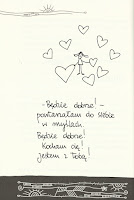 - Będzie dobrze! -
powtarzałam do siebie
w myślach.
Będzie dobrze!
Kocham cię!
Jestem z Tobą!